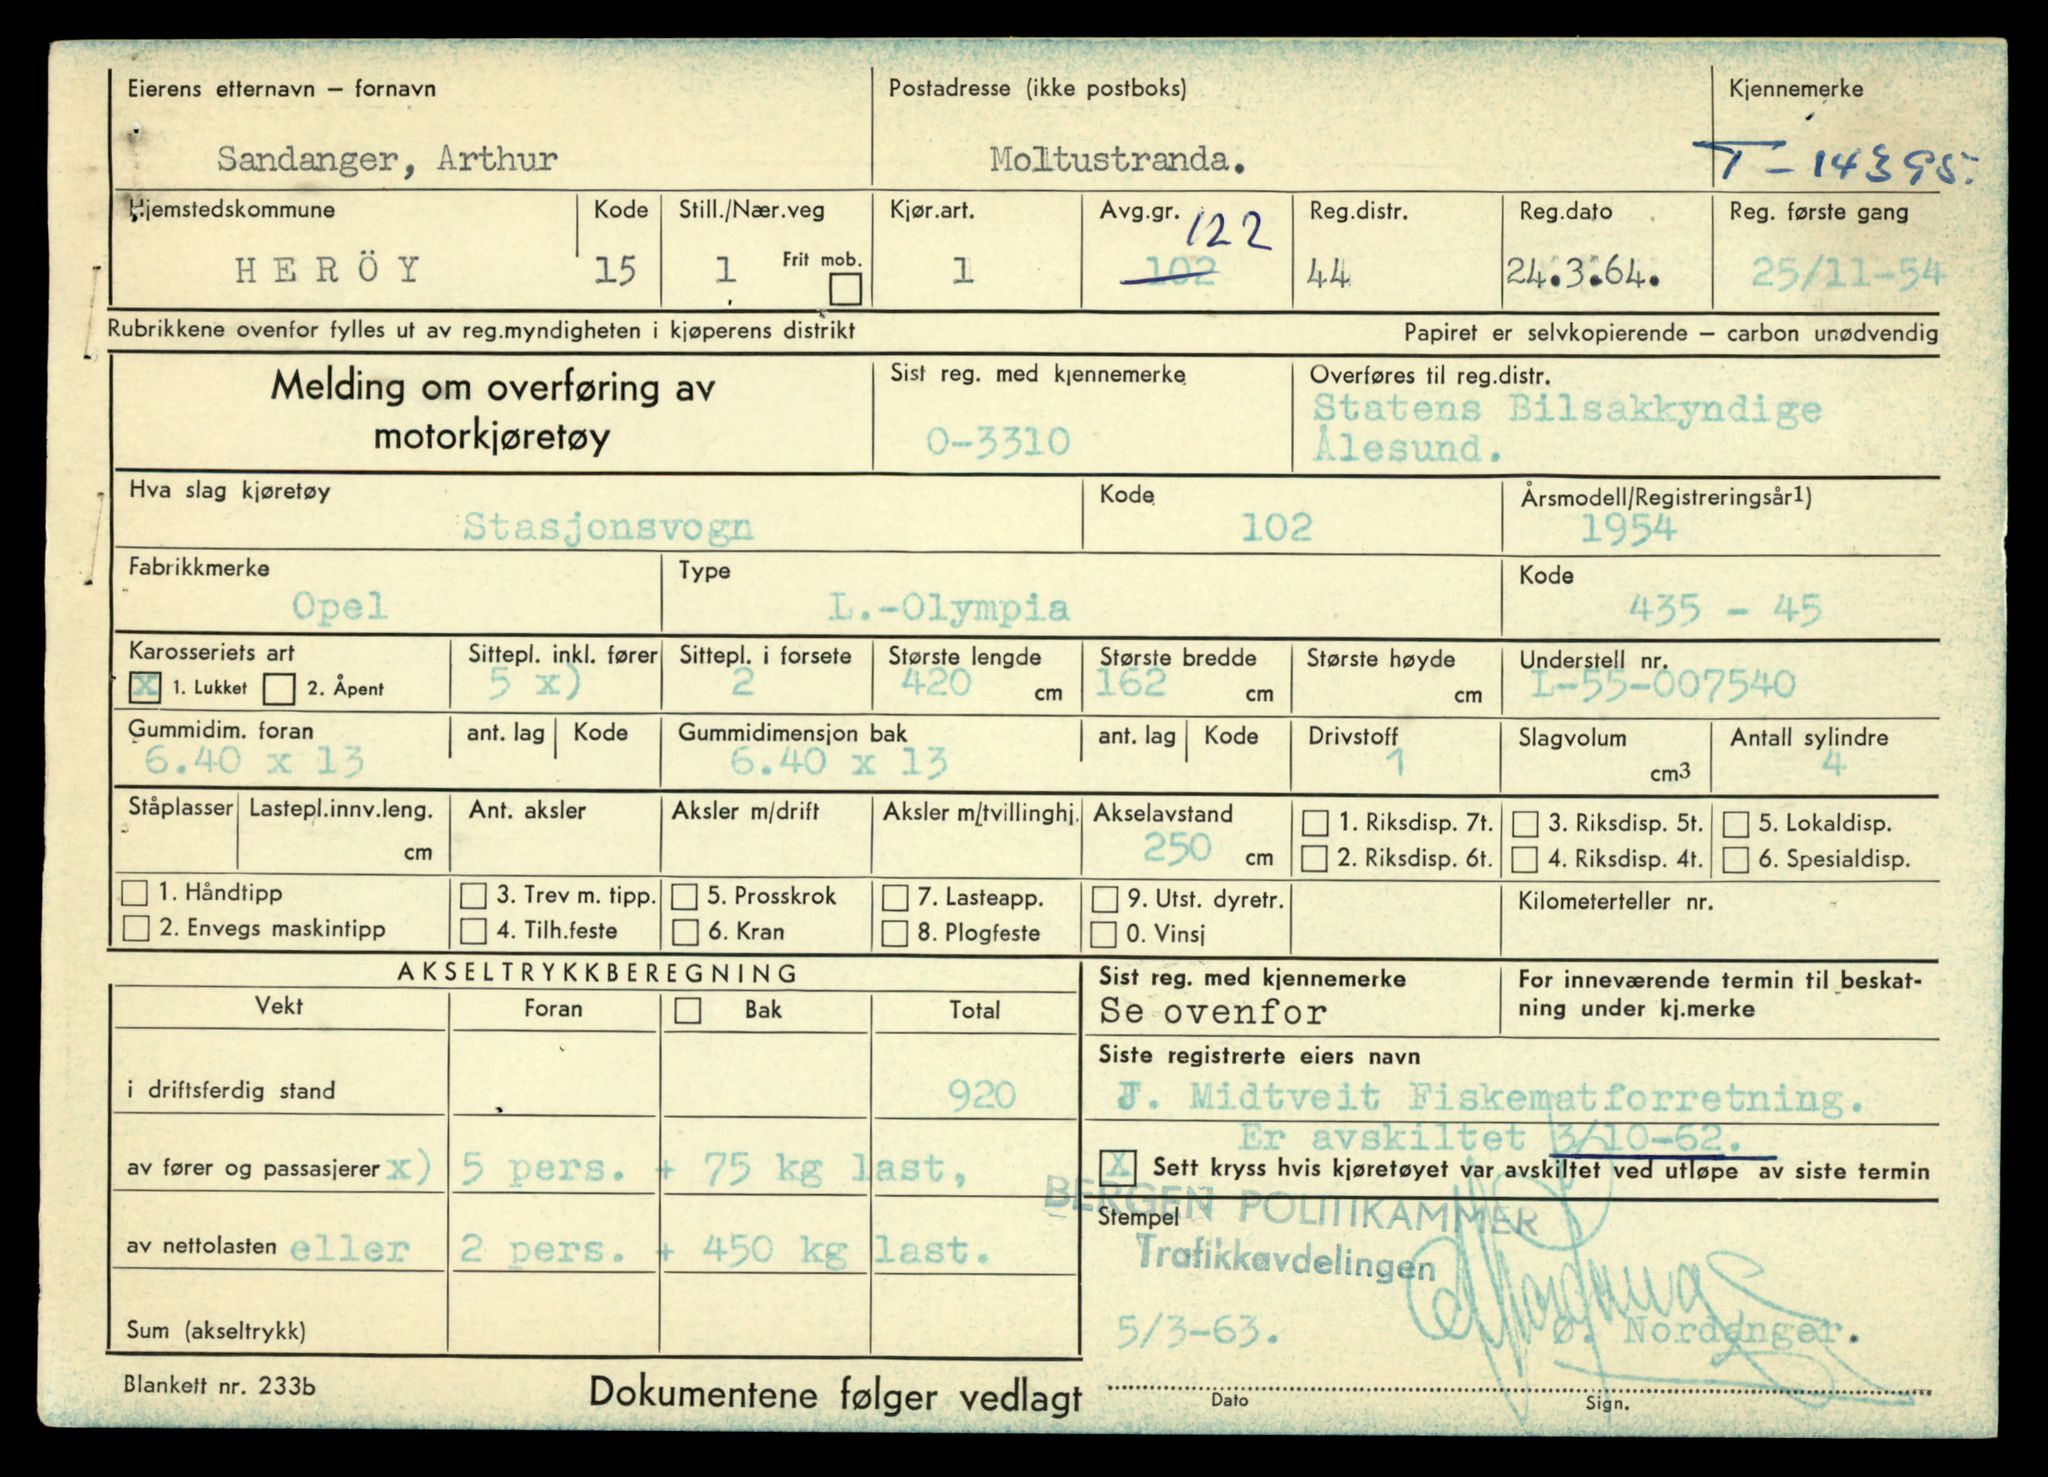 Eierens etternavn – fornavn
Postadresse (ikke postboks)
Kjennemerke
Sandanger, Arthur
Moltustranda.
T-14395.
Hjemstedskommune
Kode
Still./Nær.veg
Kjør.art.
Avg.gr.
Reg.distr.
Reg.dato
Reg. første gang
HERÖY
15
1
Frit mob.
1
102
122
44
24.3.64.
25/11-54
Rubrikkene ovenfor fylles ut av reg.myndigheten i kjøperens distrikt
Papiret er selvkopierende – carbon unødvendig
Melding om overføring av
motorkjøretøy
Sist reg. med kjennemerke
O-3310
Overføres til reg.distr.
Statens Bilsakkyndige
Ålesund.
Hva slag kjøretøy
Kode
Årsmodell/Registreringsår1)
Stasjonsvogn
102
1954
Fabrikkmerke
Type
Kode
Opel
L.-Olympia
435 - 45
Karosseriets art
Sittepl. inkl. fører
Sittepl. i forsete
Største lengde
Største bredde
Største høyde
Understell nr.
X 1. Lukket 2. Åpent
5 x)
2
420 cm
162 cm
cm
L-55-007540
Gummidim. foran
ant. lag
Kode
Gummidimensjon bak
ant. lag
Kode
Drivstoff
Slagvolum
Antall sylindre
6.40 x 13
6.40 x 13
1
cm3
4
Ståplasser
Lastepl.innv.leng.
Ant. aksler
Aksler m/drift
Aksler m/tvillinghj.
Akselavstand
1. Riksdisp. 7t.
3. Riksdisp. 5t.
5. Lokaldisp.
cm
250 cm
2. Riksdisp. 6t.
4. Riksdisp. 4t.
6. Spesialdisp.
1. Håndtipp
3. Trev m. tipp.
5. Prosskrok
7. Lasteapp.
9. Utst. dyretr.
Kilometerteller nr.
2. Envegs maskintipp
4. Tilh.feste
6. Kran
8. Plogfeste
0. Vinsj
AKSELTRYKKBEREGNING
Vekt
Foran
Bak
Total
i driftsferdig stand
920
av fører og passasjerer x) 5 pers. + 75 kg last,
av nettolasten eller 2 pers. + 450 kg last.
Sum (akseltrykk)
Sist reg. med kjennemerke
Se ovenfor
For inneværende termin til beskat-
ning under kj.merke
Siste registrerte eiers navn
J. Midtveit Fiskematforretning.
Er avskiltet 3/10-62.
X Sett kryss hvis kjøretøyet var avskiltet ved utløpe av siste termin
BERGEN POLITIKAMMER
Stempel
Trafikkavdelingen
5/3-63.
Ø. Nordanger.
Dato
Sign.
Blankett nr. 233b
Dokumentene følger vedlagt